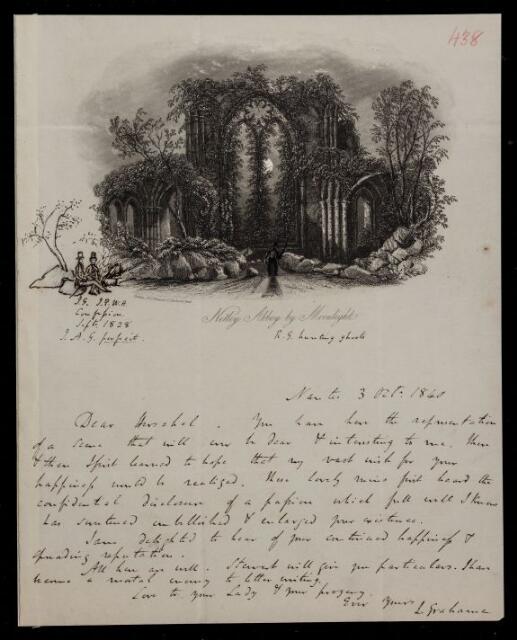 438
J.G. J.F.W.H
Confession
Sept. 1828
J.A.G. fecit.
Netley Abbey by Moonlight
R.G. hunting ghosts
Nantes 3 Oct. 1840
Dear Herschel. You have here the representation
of a scene that will ever be dear & interesting to me. There
& then I first learned to hope that my wish for your
happiness would be realized. These lovely ruins first heard the
confidential disclosure of a passion which full well I know
has sweetened embellished & enlarged your existence.
I am delighted to hear of your continued happiness &
spreading reputation.
All here are well. Stewart will give you particulars. I have
become a mortal enemy to letter writing.
Love to your Lady & your progeny.
Ever Yours
J. Grahame